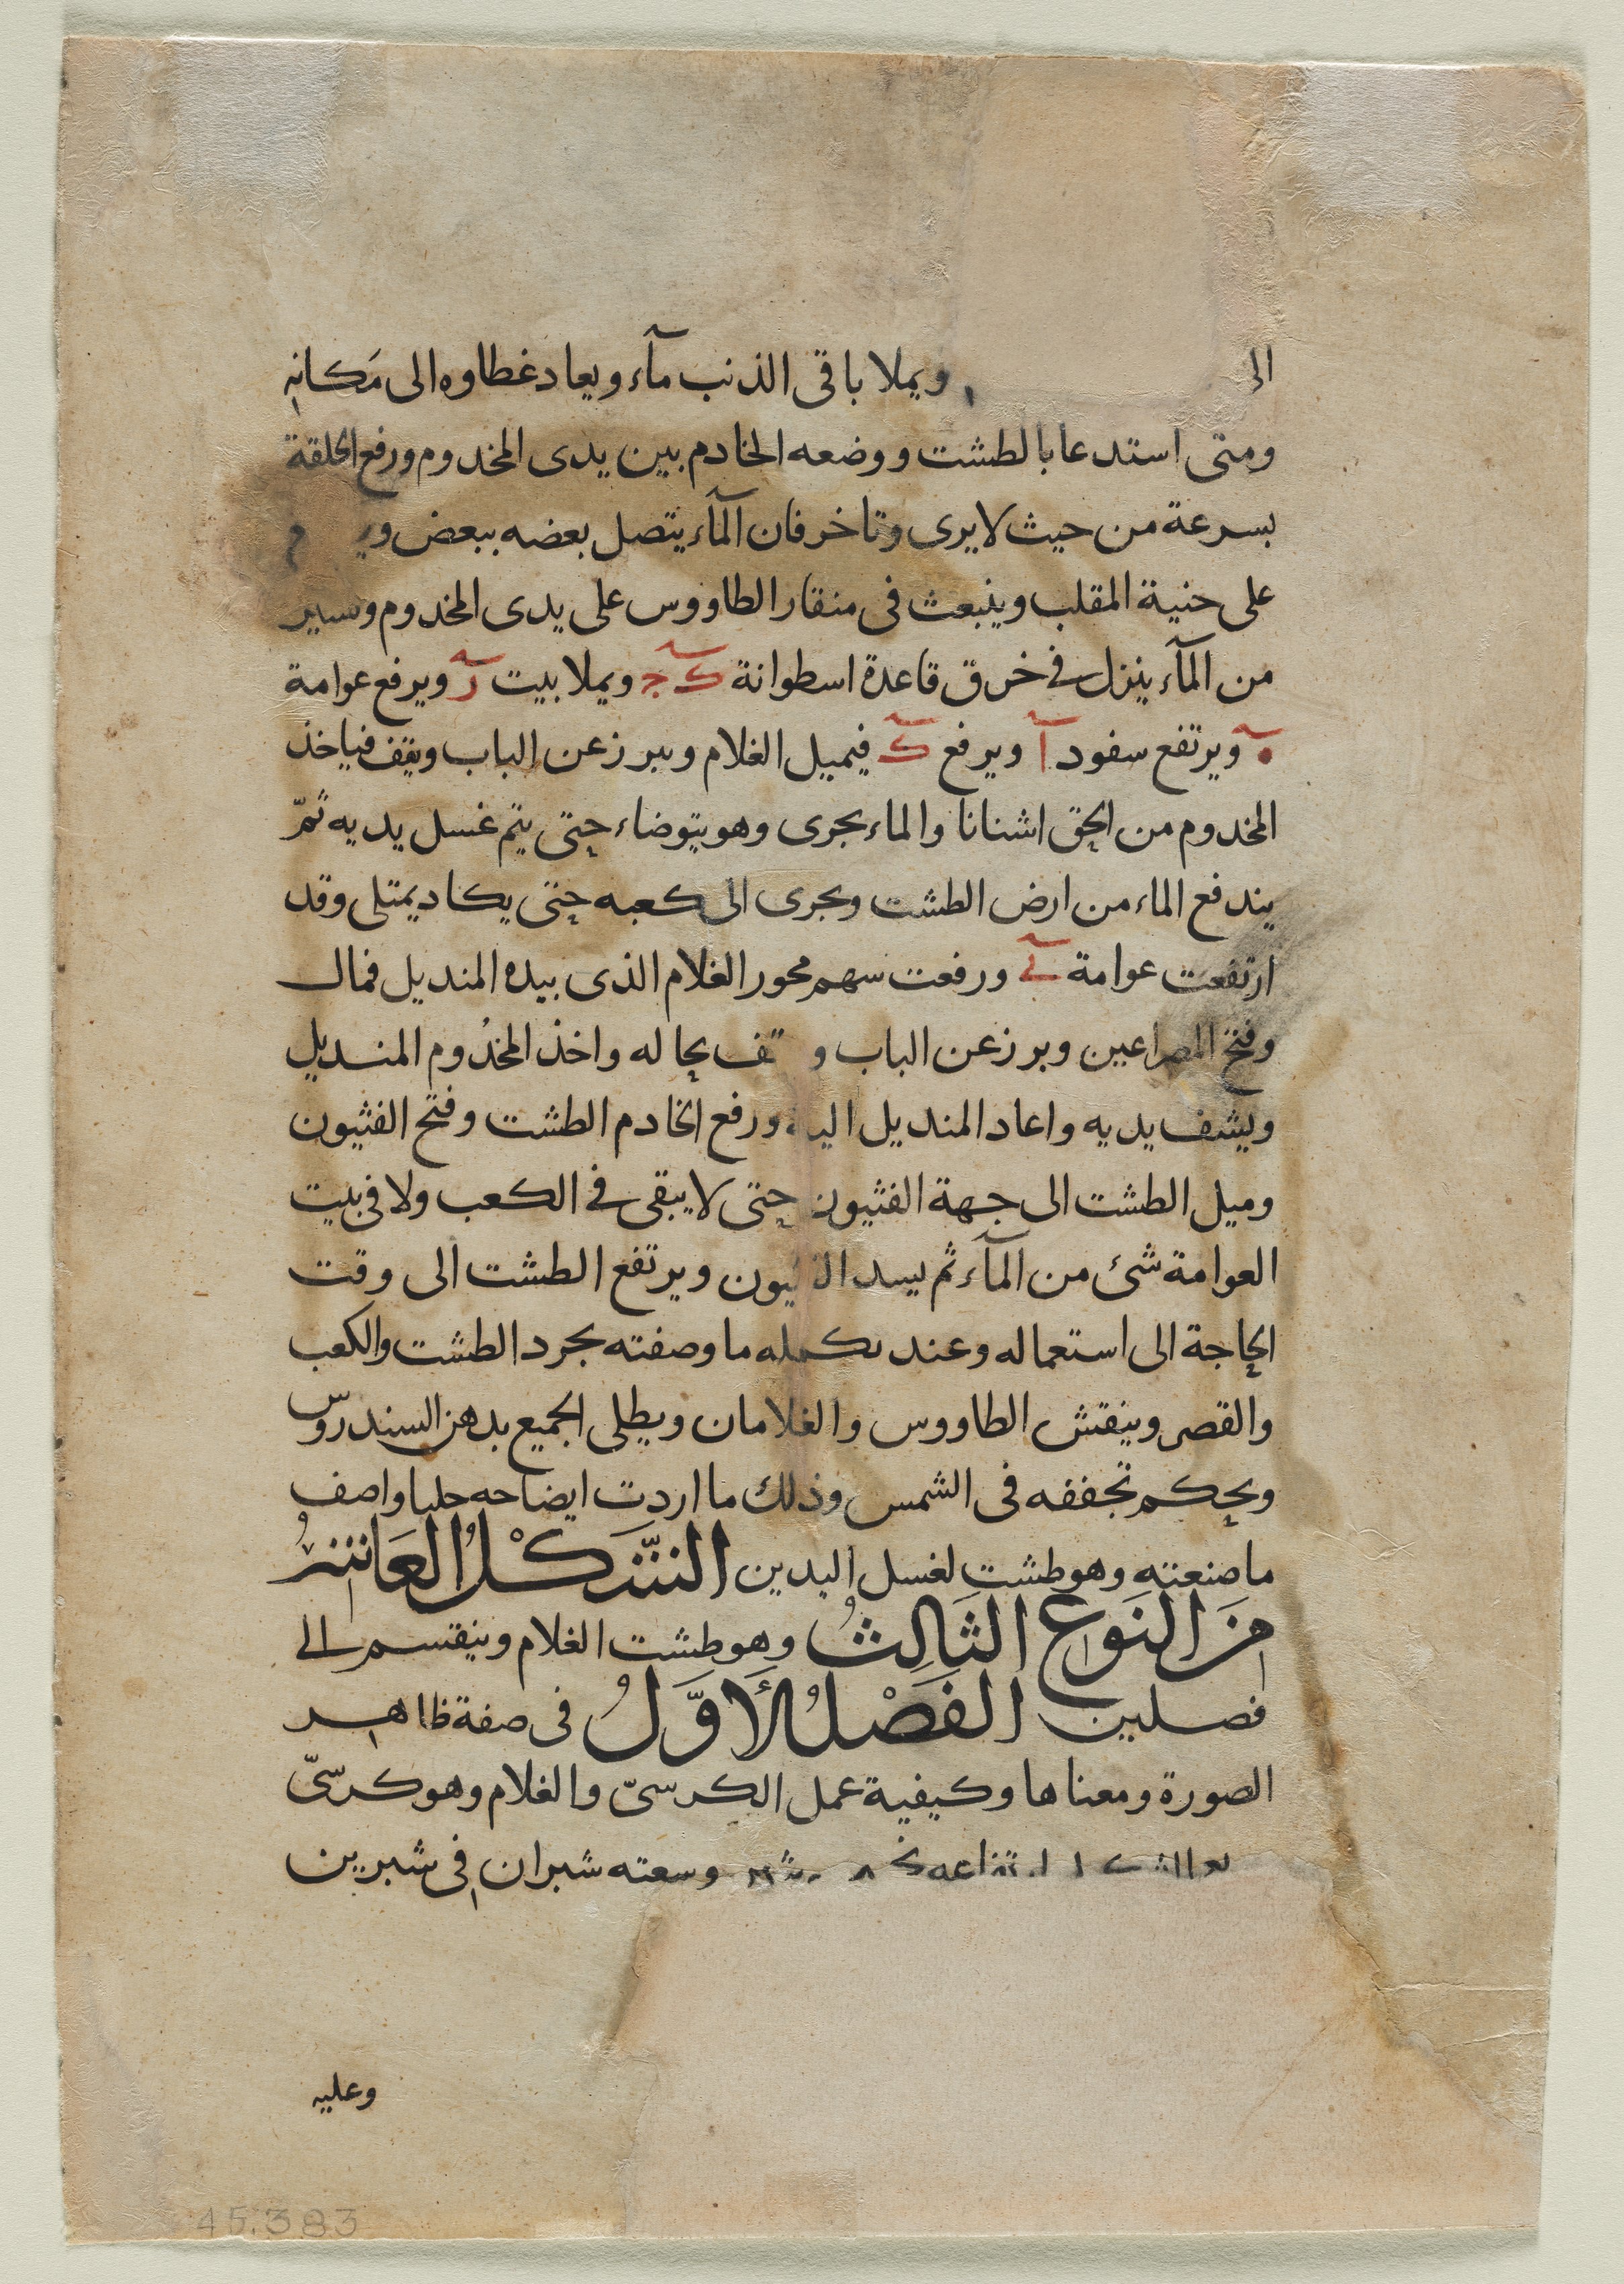 الى ويملا باقى الذنب مآء ويعاد غطاوه الى مَكانه
ومتى استدعا بالطشت ووضعه الخادم بين يدى المخدوم ورفع الحلقة
بسرعة من حيث لا يرى وتاخر فان المآء يتصل بعضه ببعض
على حنية المقلب وينبعث فى منقار الطاووس على يدى المخدوم وسير
من المآء ينزل فى خرق قاعدة اسطوانة كـ جـ ويملا بيت ز ويرفع عوامة
ه ويرتفع سفود آ ويرفع كـ فيميل الغلام ويبرز عن الباب ويقف فياخذ
المخدوم من الحق اشنانا والماء يجرى وهو يتوضاء حتى يتم غسل يديه ثمّ
يندفع الماء من ارض الطشت ويجرى الى كعبه حتى يكاد يمتلى وقد
ارتفعت عوامة ورفعت سهم محور الغلام الذى بيده المنديل فمال
وفتح المصراعين وبرز عن الباب بحاله واخذ المخدُوم المنديل
وينشف يديه واعاد المنديل اليه ورفع الخادم الطشت وفتح الفثيون
وميل الطشت الى جهة الفثيون حتى لا يبقى فى الكعب ولا فى بيت
العوامة شئ من المآء ثم يسد الفثيون ويرتفع الطشت الى وقت
الحاجة الى استعماله وعند تكمله ما وصفته يجرد الطشت والكعب
والقصر وينقش الطاووس والغلامان ويطلى الجميع بدهن السندروس
ويحكم تجففه فى الشمس وذلك ما اردت ايضاحه جليا واصف
ما صنعته وهو طشت لغسل اليدين الشَّكْلُ العَاشِرُ
مِنَ النَوع الثَالِثُ وهو طشت الغلام وينقسم الى
فصلين الفَصْلُ الأَوَّلُ فى صفة ظاهر
الصورة ومعناها وكيفية عمل الكرسىّ والغلام وهو كرسىّ
ارتفاعه وسعته شبران فى شبرين
وعليه
45.383